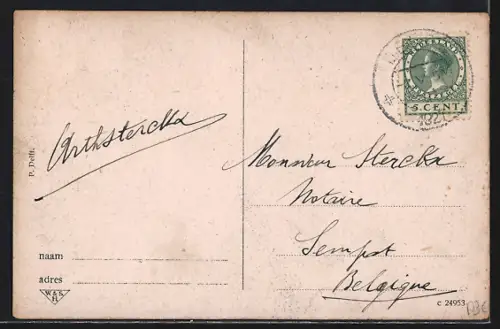 NEDERLAND
5 CENT
Arth Sterckx
Monsieur Sterckx
Notaire
Sempst
Belgique
P. Delft.
naam
adres
W & S
H
c 24953